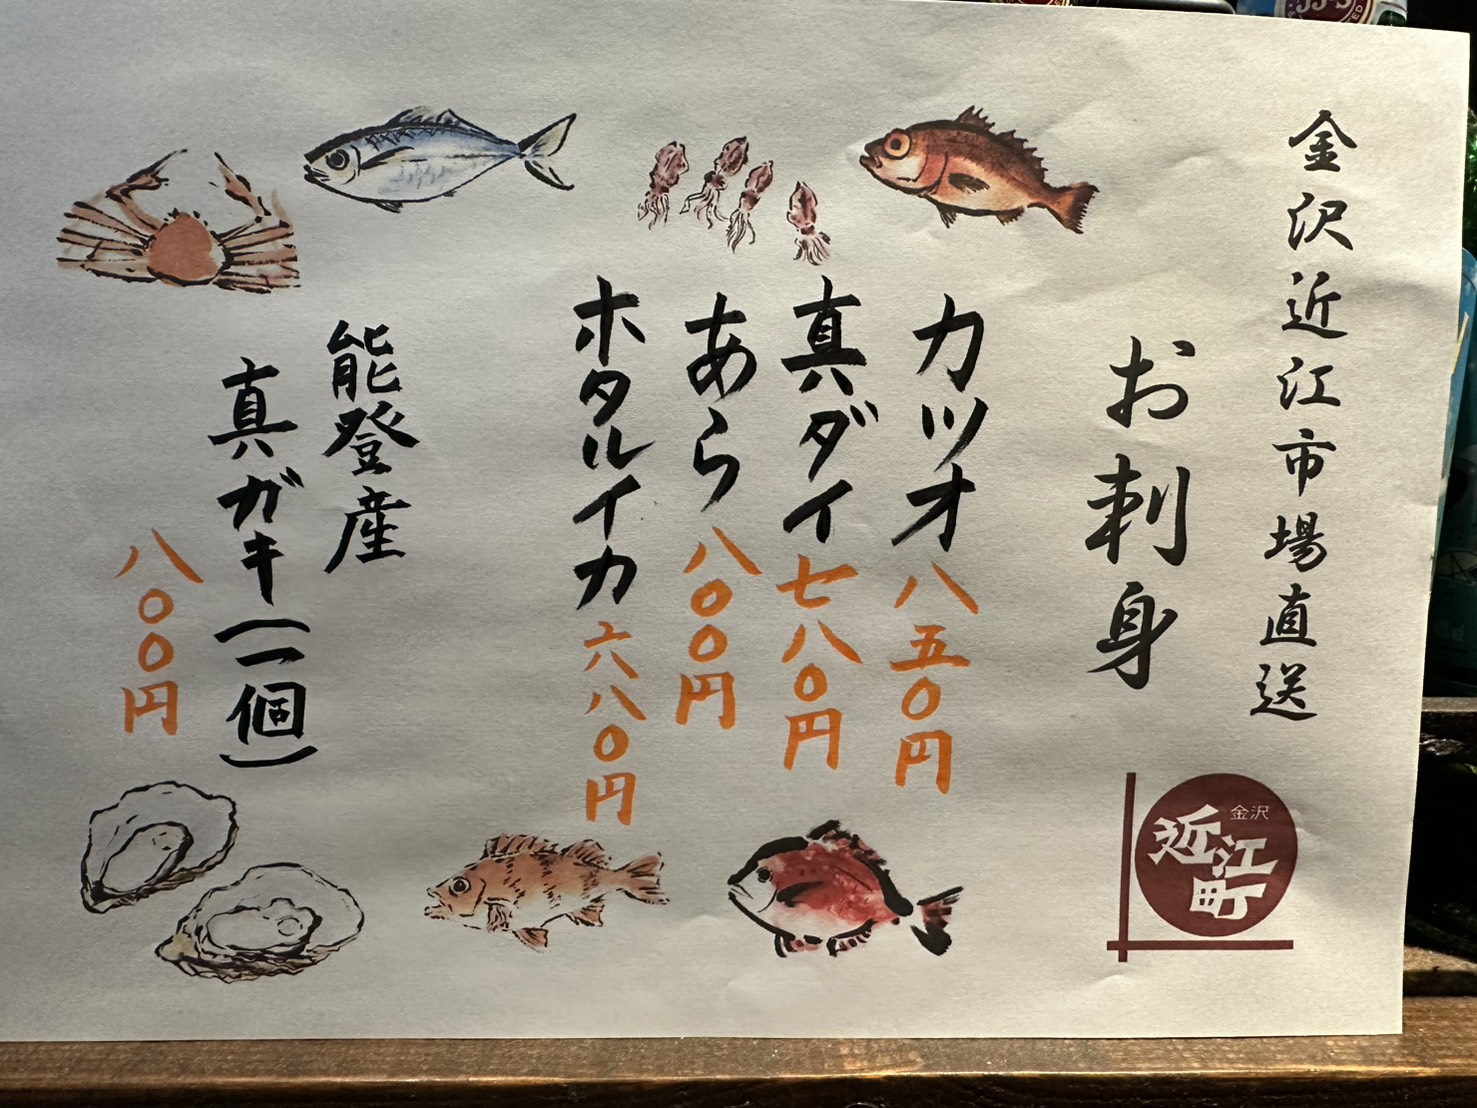 金沢近江市場直送
お刺身
カツオ 八五〇円
真ダイ 七八〇円
あら 八〇〇円
ホタルイカ 六八〇円
能登産
真ガキ(一個)
八〇〇円
金沢
近江町